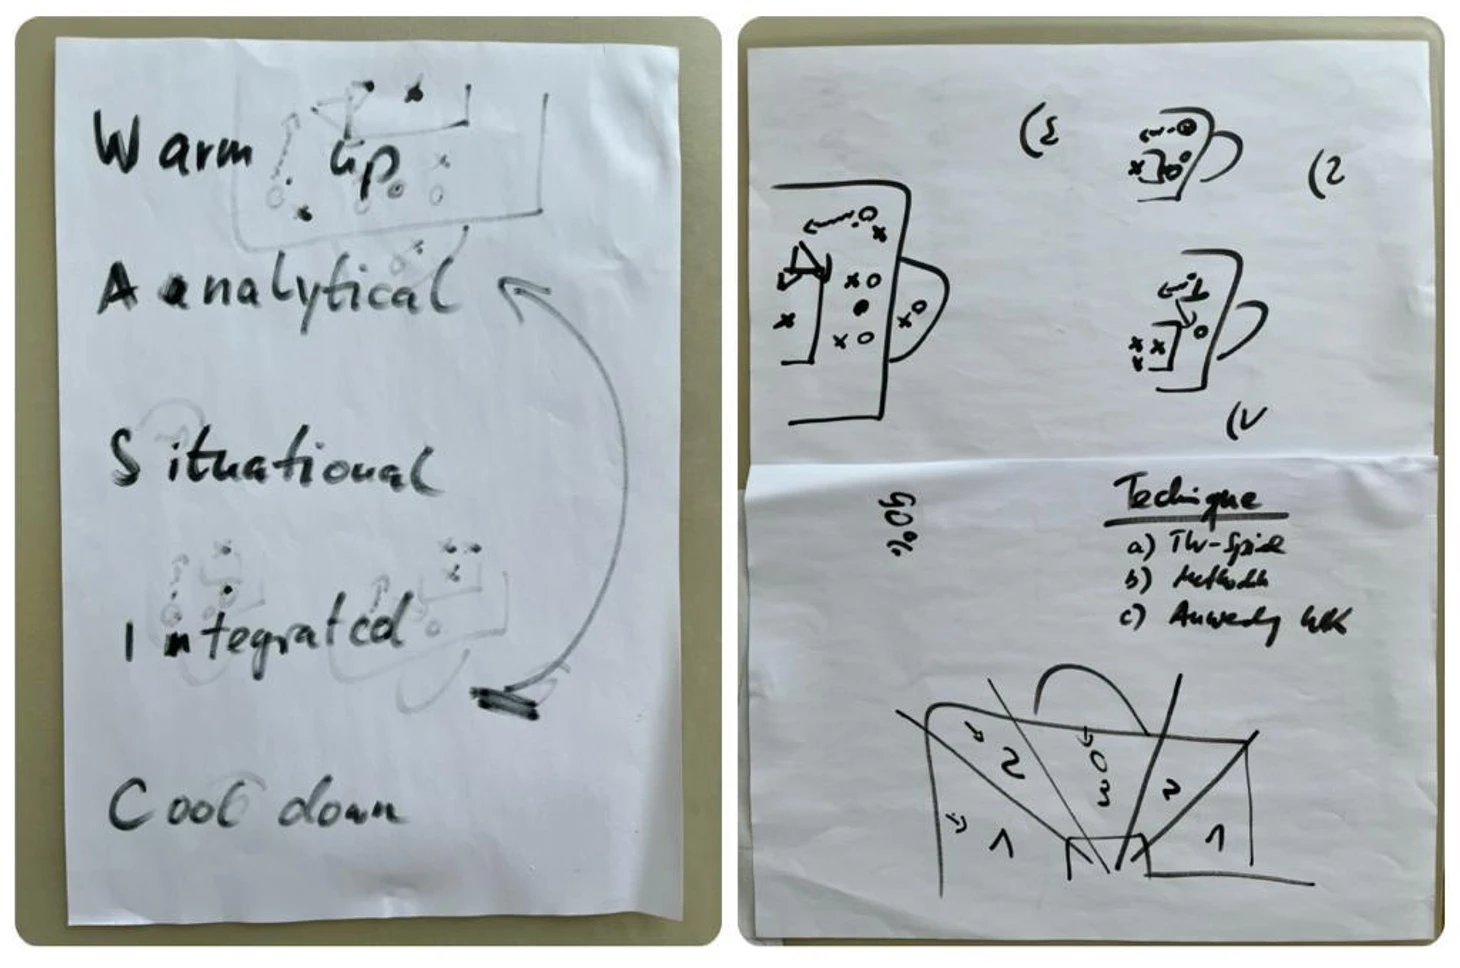 Warm up
Analytical
Situational
Integrated
Cool down
(3
(2
(1
90%
Technique
a) TW-Spiel
b) Methodik
c) 
2
3
2
1
1